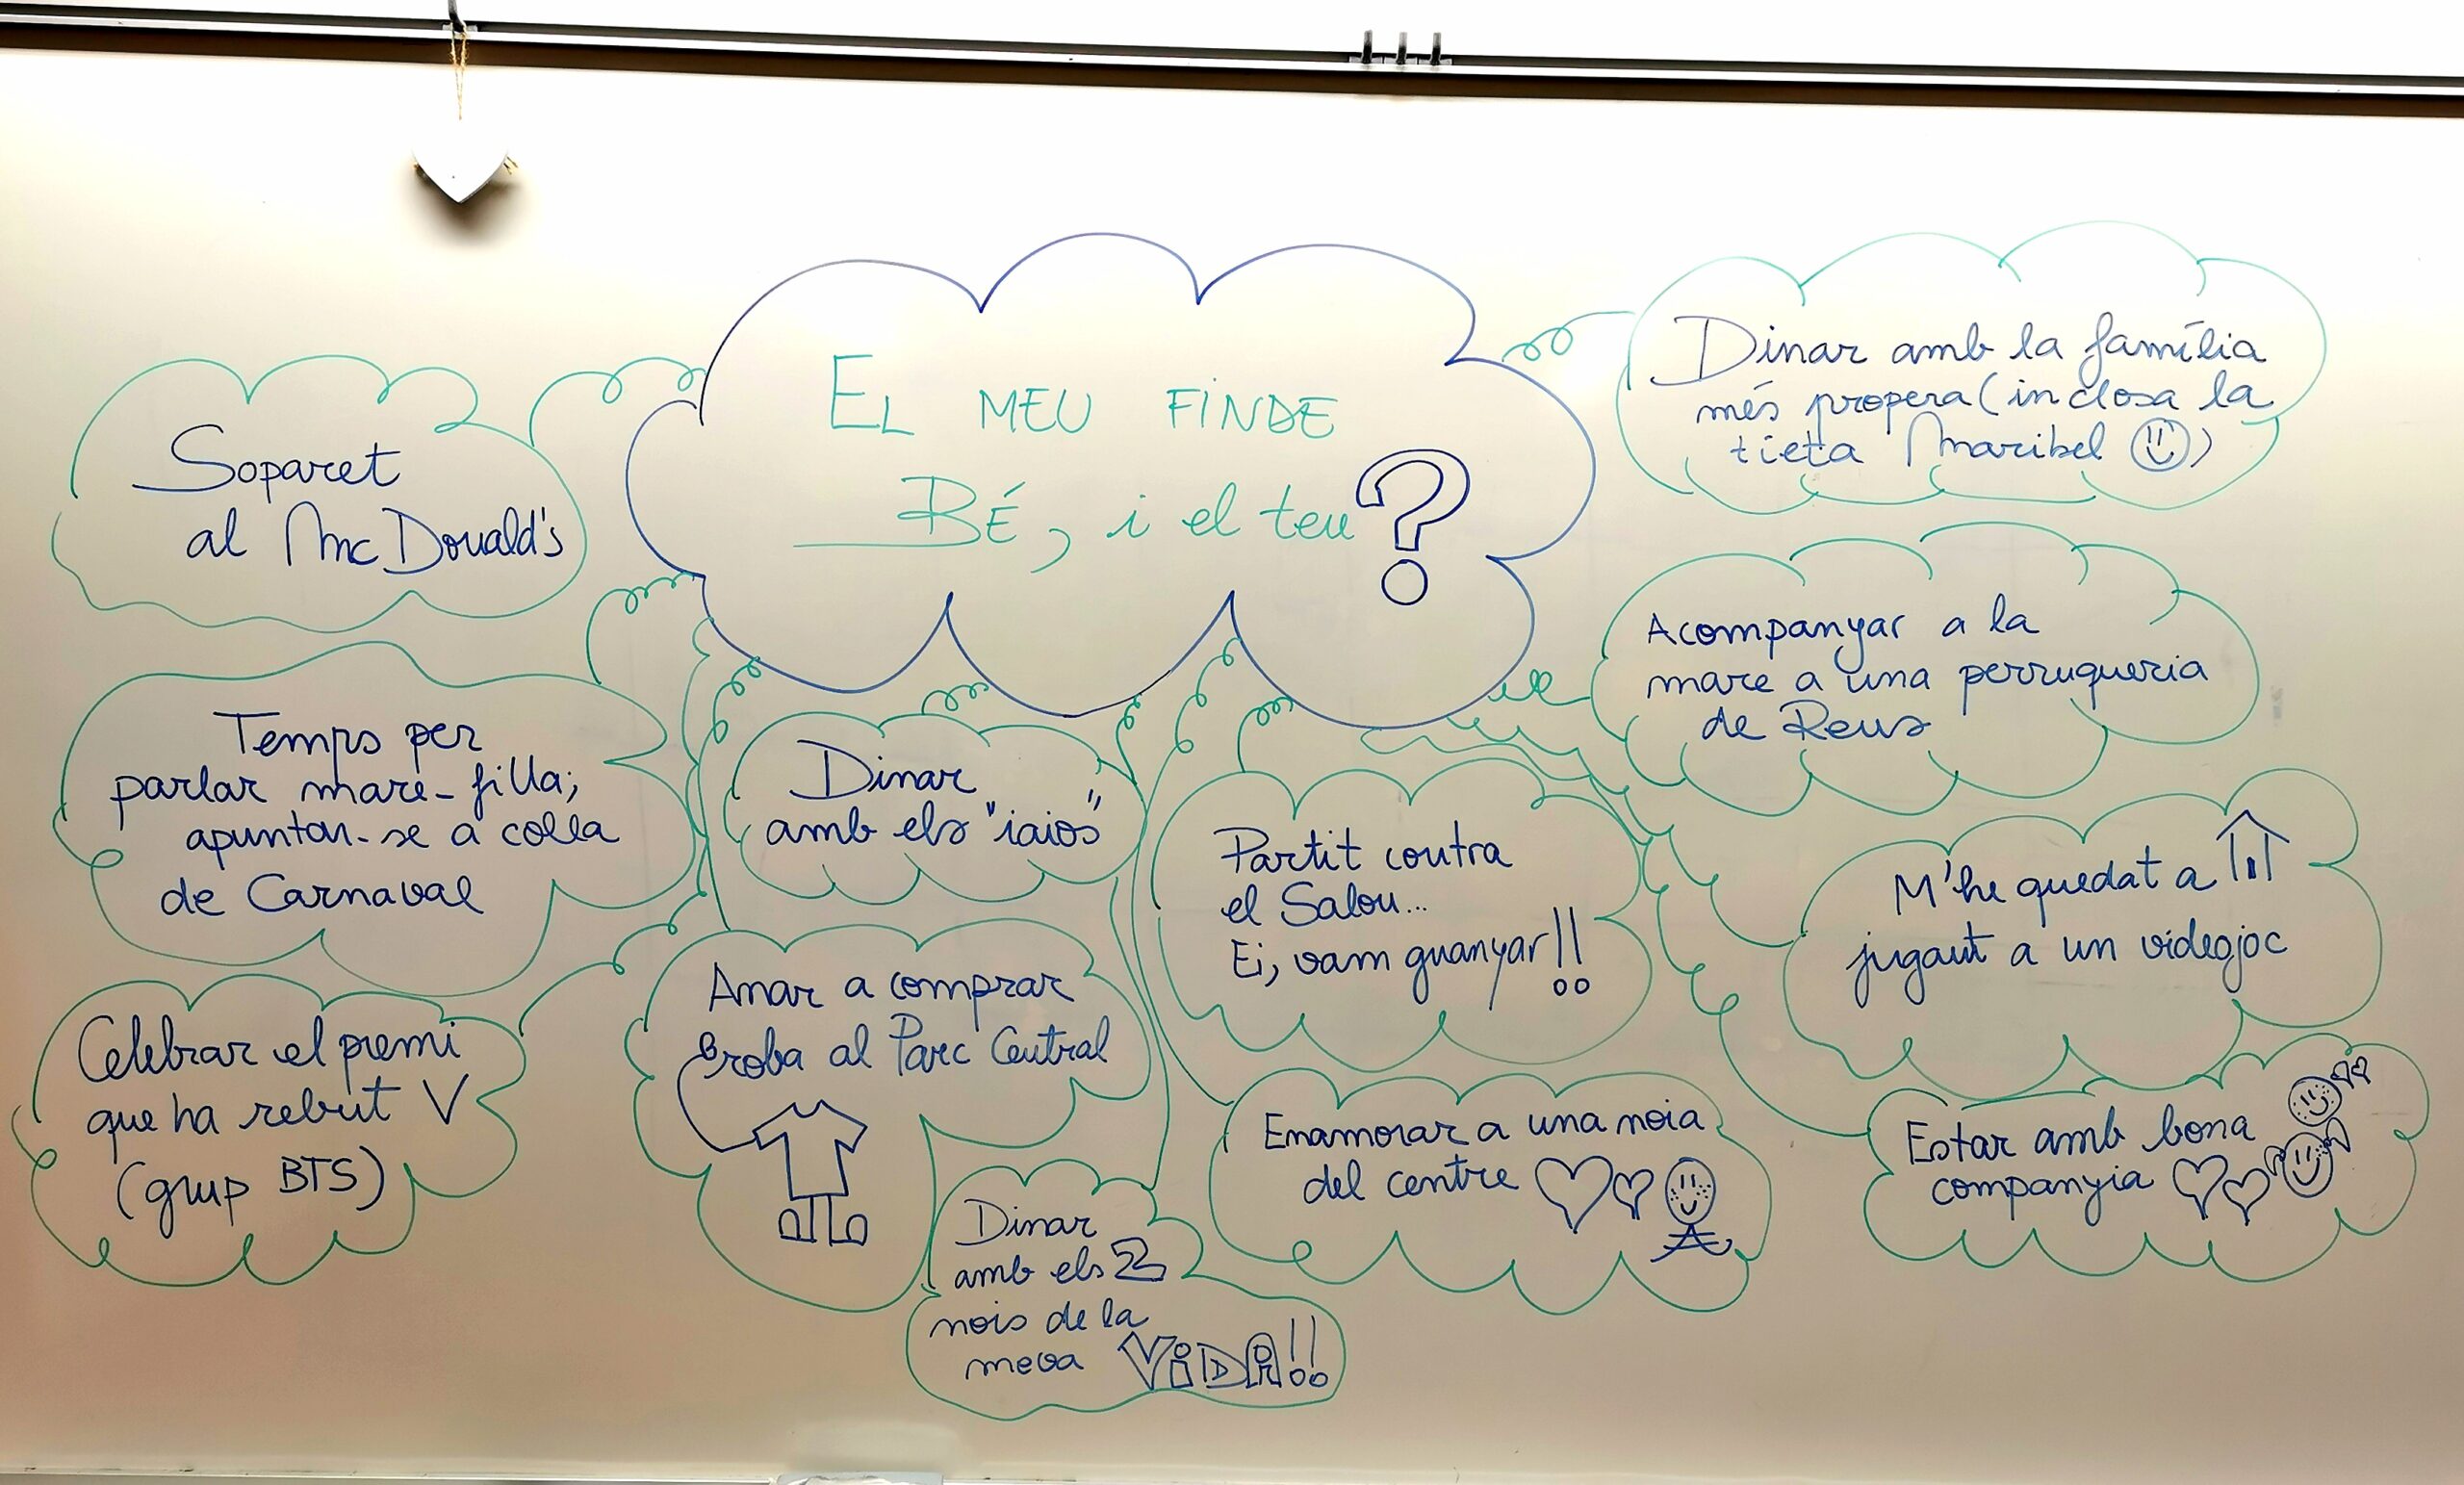 EL MEU FINDE
BÉ, i el teu?
Soparet
al McDonald's
Temps per
parlar mare-filla;
apuntar-se a colla
de Carnaval
Celebrar el premi
que ha rebut V
(grup BTS)
Dinar
amb els "iaios"
Anar a comprar
roba al Parc Central
Dinar
amb els 2
nois de la
meva ViDA!!
Partit contra
el Salou...
Ei, vam guanyar!!
Enamorar a una noia
del centre
Dinar amb la família
més propera (inclosa la
tieta Maribel )
Acompanyar a la
mare a una perruqueria
de Reus
M'he quedat a
jugant a un videojoc
Estar amb bona
companyia